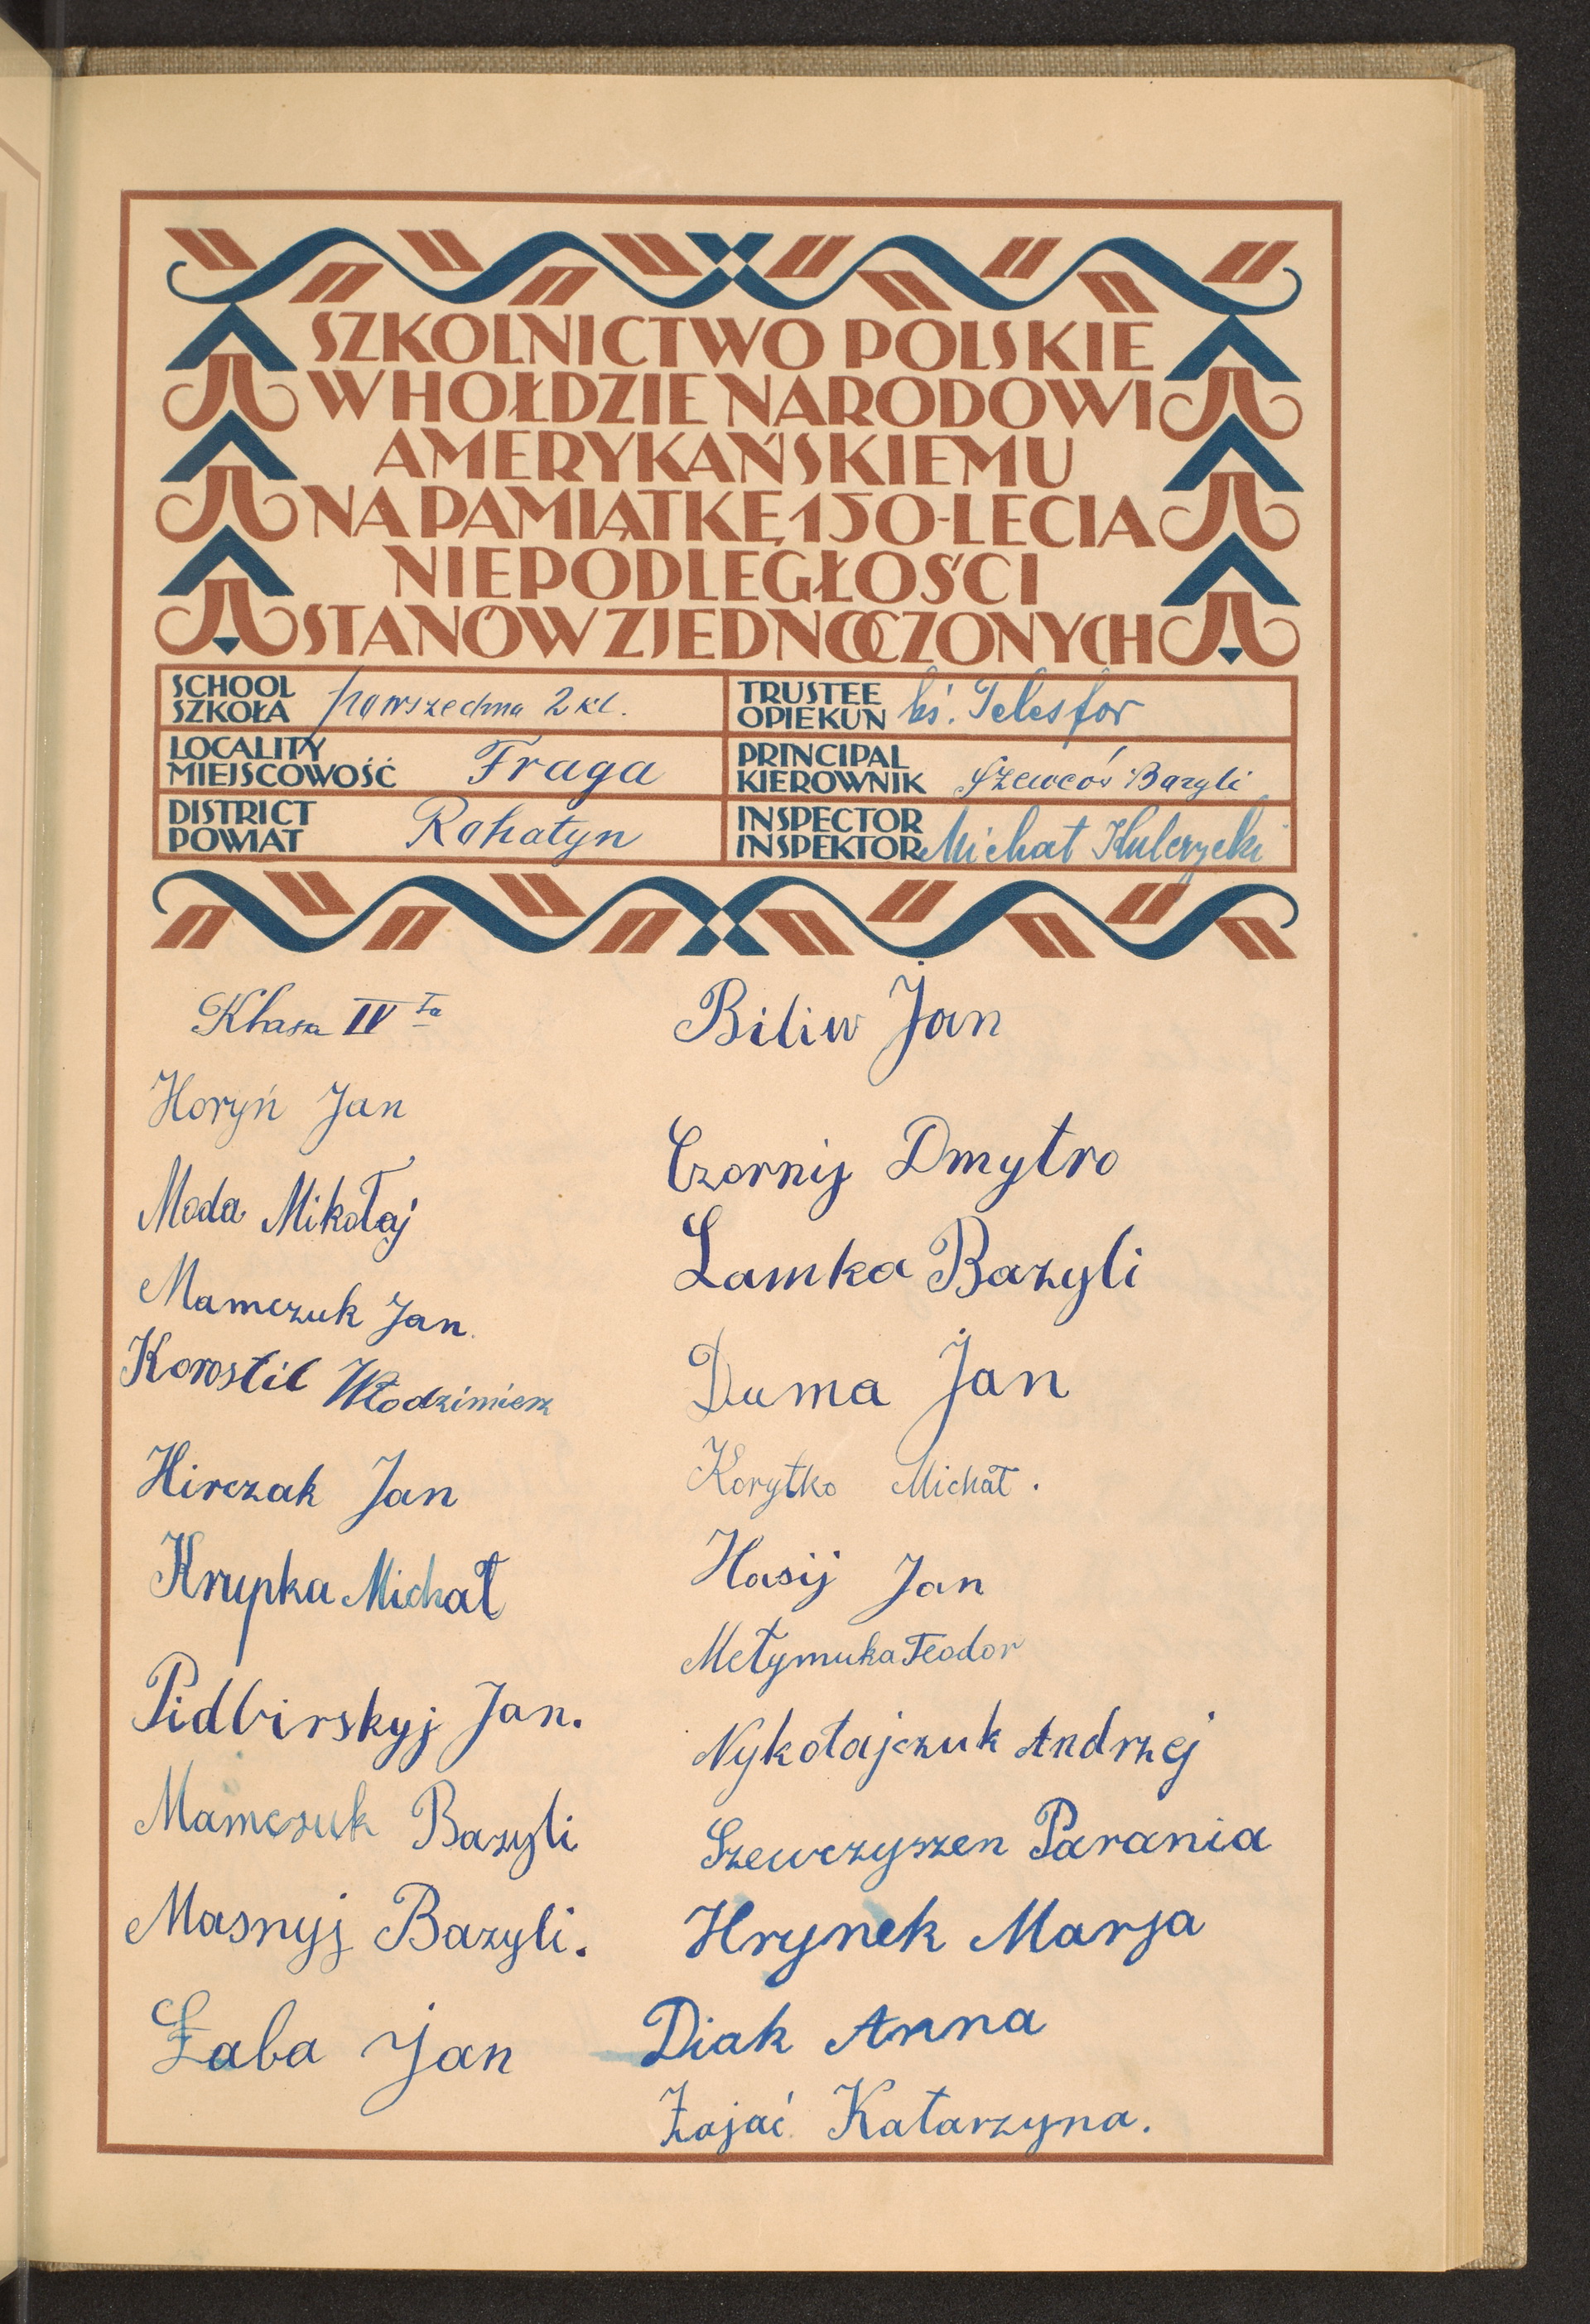 SZKOLNICTWO POLSKIE
W HOŁDZIE NARODOWI
AMERYKAŃSKIEMU
NA PAMIĄTKĘ 150-LECIA
NIEPODLEGŁOŚCI
STANÓW ZJEDNOCZONYCH
SCHOOL
SZKOŁA powszechna 2 kl.
LOCALITY
MIEJSCOWOŚĆ Fraga
DISTRICT
POWIAT Rohatyn
TRUSTEE
OPIEKUN Telesfor
PRINCIPAL
KIEROWNIK Szewców Bazyli
INSPECTOR
INSPEKTOR Michał Kulczycki
Klasa IV ta
Horyń Jan
Moda Mikołaj
Mamczuk Jan.
Korostil Włodzimierz
Hirczak Jan
Krupka Michał
Pidbirskyj Jan.
Mamczuk Bazyli
Masnyj Bazyli.
Żaba Jan
Biliw Jan
Czornij Dmytro
Lamka Bazyli
Duma Jan
Korytko Michał.
Hasij Jan
Metymuka Teodor
Nykołajczuk Andrzej
Szewczyszen Parania
Hrynek Marja
Diak Anna
Zajać Katarzyna.